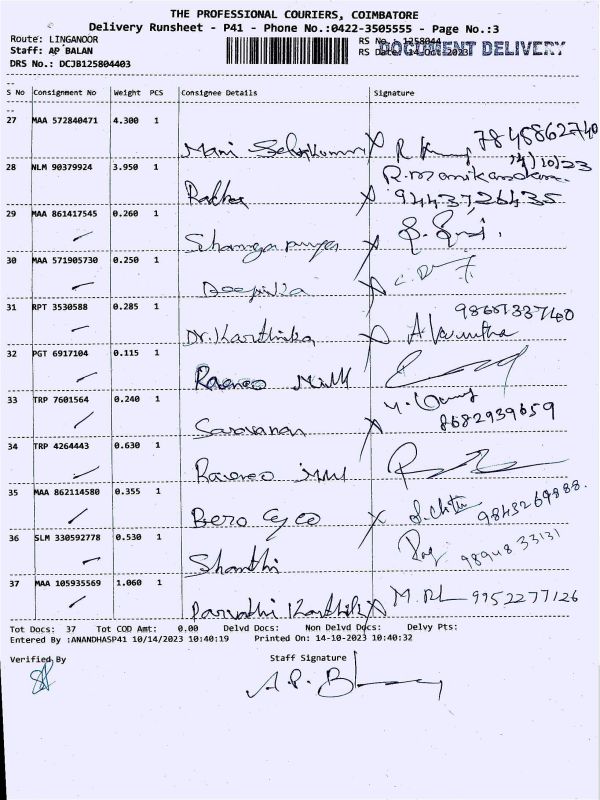 THE PROFESSIONAL COURIERS, COIMBATORE
Delivery Runsheet - P41 - Phone No.:0422-3505555 - Page No.:3
Route: LINGANOOR
RS No.: 1258044
DOCUMENT DELIVERY
Staff: AP BALAN
RS Date: 14 Oct 2023
DRS No.: DCJB125804403
S No Consignment No Weight PCS Consignee Details Signature
27 MAA 572840471 4.300 1
Mani Selvakumar
14/10/23
28 NLM 90379924 3.950 1
R.manikandan
Radha 9443726435
29 MAA 861417545 0.260 1
30 MAA 571905730 0.250 1
Deepika
31 RPT 3530588 0.285 1
Dr. Karthika
32 PGT 6917104 0.115 1
33 TRP 7601564 0.240 1
8682939659
Saravanan
34 TRP 4264443 0.630 1
35 MAA 862114580 0.355 1
Bero
36 SLM 330592778 0.530 1
Shanthi
37 MAA 105935569 1.060 1
Parvathi Karthik 9952277126
Tot Docs: 37 Tot COD Amt: 0.00 Delvd Docs: Non Delvd Docs: Delvy Pts:
Entered By :ANANDHASP41 10/14/2023 10:40:19 Printed On: 14-10-2023 10:40:32
Verified By Staff Signature